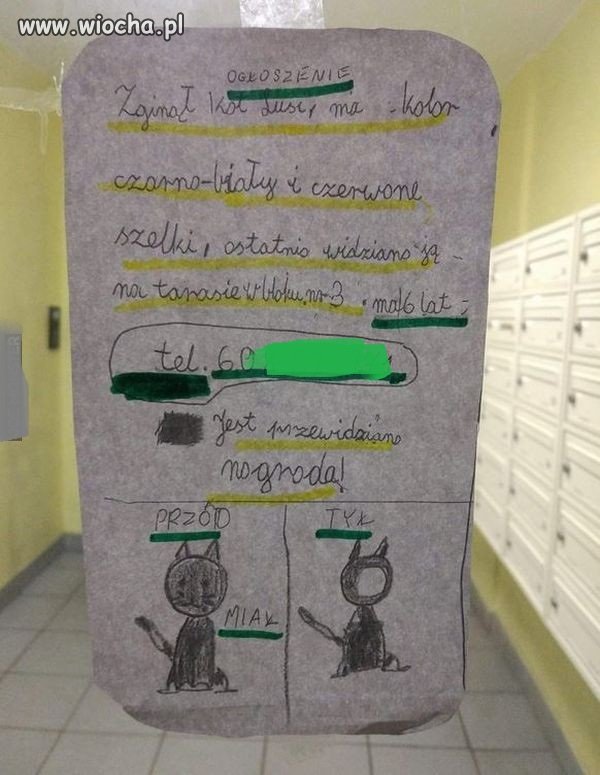 www.wiocha.pl
OGŁOSZENIE
Zginął kot Lusi, ma - kolor
czarno-biały i czerwone
szelki, ostatnio widziano ją -
na tarasie w bloku nr 3. ma 6 lat -
tel. 60
Jest przewidziano
nagroda!
PRZÓD
TYŁ
MIAŁ